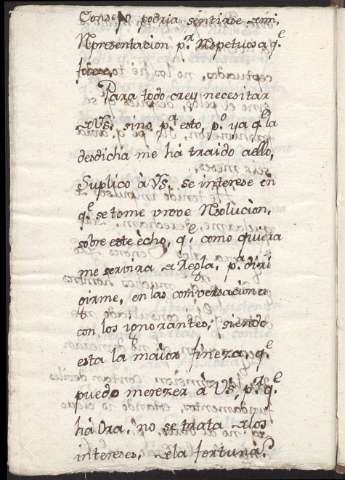 Consejo podria sentirse a mi,
Representacion p.r respetuosa q.e
Para todo creý necesitar
a VS. sino p.a esto, p.o ya q.e la
desdicha me há traido a ello,
Suplico à VS. se interese en
q.e se tome prove Resoluciòn,
sobre este ècho, q.e como quiera
me servirà de Regla, p.a diri
girme, en las conversaciones
con los ignorantes, siendo
esta la màior fineza, q.e
puedo merezer à VS. p.r q.e
hà Ora, no se trata de los
intereses, de la fortuna.